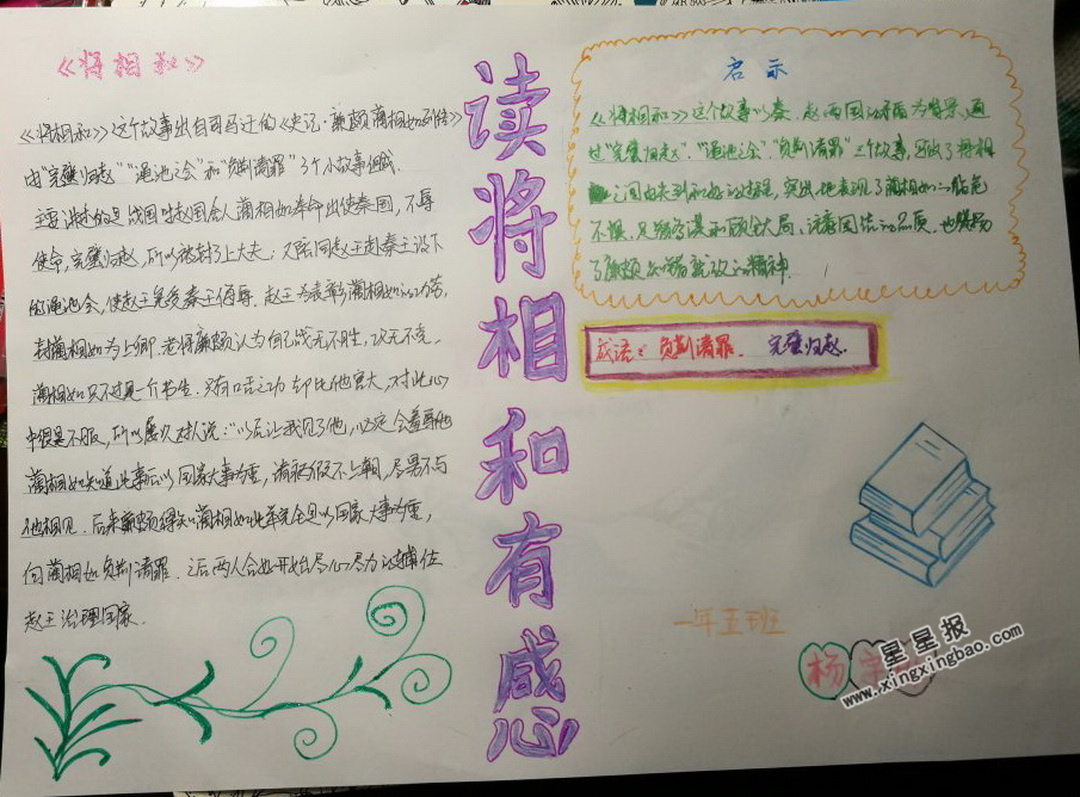 《将相和》
《将相和》这个故事出自司马迁的《史记·廉颇蔺相如列传》
由"完璧归赵""渑池之会"和"负荆请罪"3个小故事组成.
主要讲述的是战国时赵国舍人蔺相如奉命出使秦国，不辱
使命，完璧归赵，所以被封了上大夫；又陪同赵王赴秦王设下
的渑池会，使赵王免受秦王侮辱.赵王为表彰蔺相如的功劳，
封蔺相如为上卿.老将廉颇认为自己战无不胜，攻无不克，
蔺相如只不过是一个书生.只有口舌之功却比他官大，对此心
中很是不服，所以屡次对人说："以后让我见了他，必定会羞辱他
蔺相如知道此事后以国家大事为重，请病假不上朝，尽量不与
他相见.后来廉颇得知蔺相如此举完全是以国家大事为重，
向蔺相如负荆请罪.之后两人合好开始尽心尽力的辅佐
赵王治理国家.
读将相和有感
启示
《将相和》这个故事以秦.赵两国的矛盾为背景，通
过"完璧归赵"."渑池之会"."负荆请罪"三个故事，写出了将相
之间由失到和好的过程，突出地表现了蔺相如的临危
不惧.足智多谋和顾全大局.讲究团结的品质.也赞扬
了廉颇知错就改的精神.
成语：负荆请罪. 完璧归赵.
一年五班
杨
星星报
www.xingxingbao.com